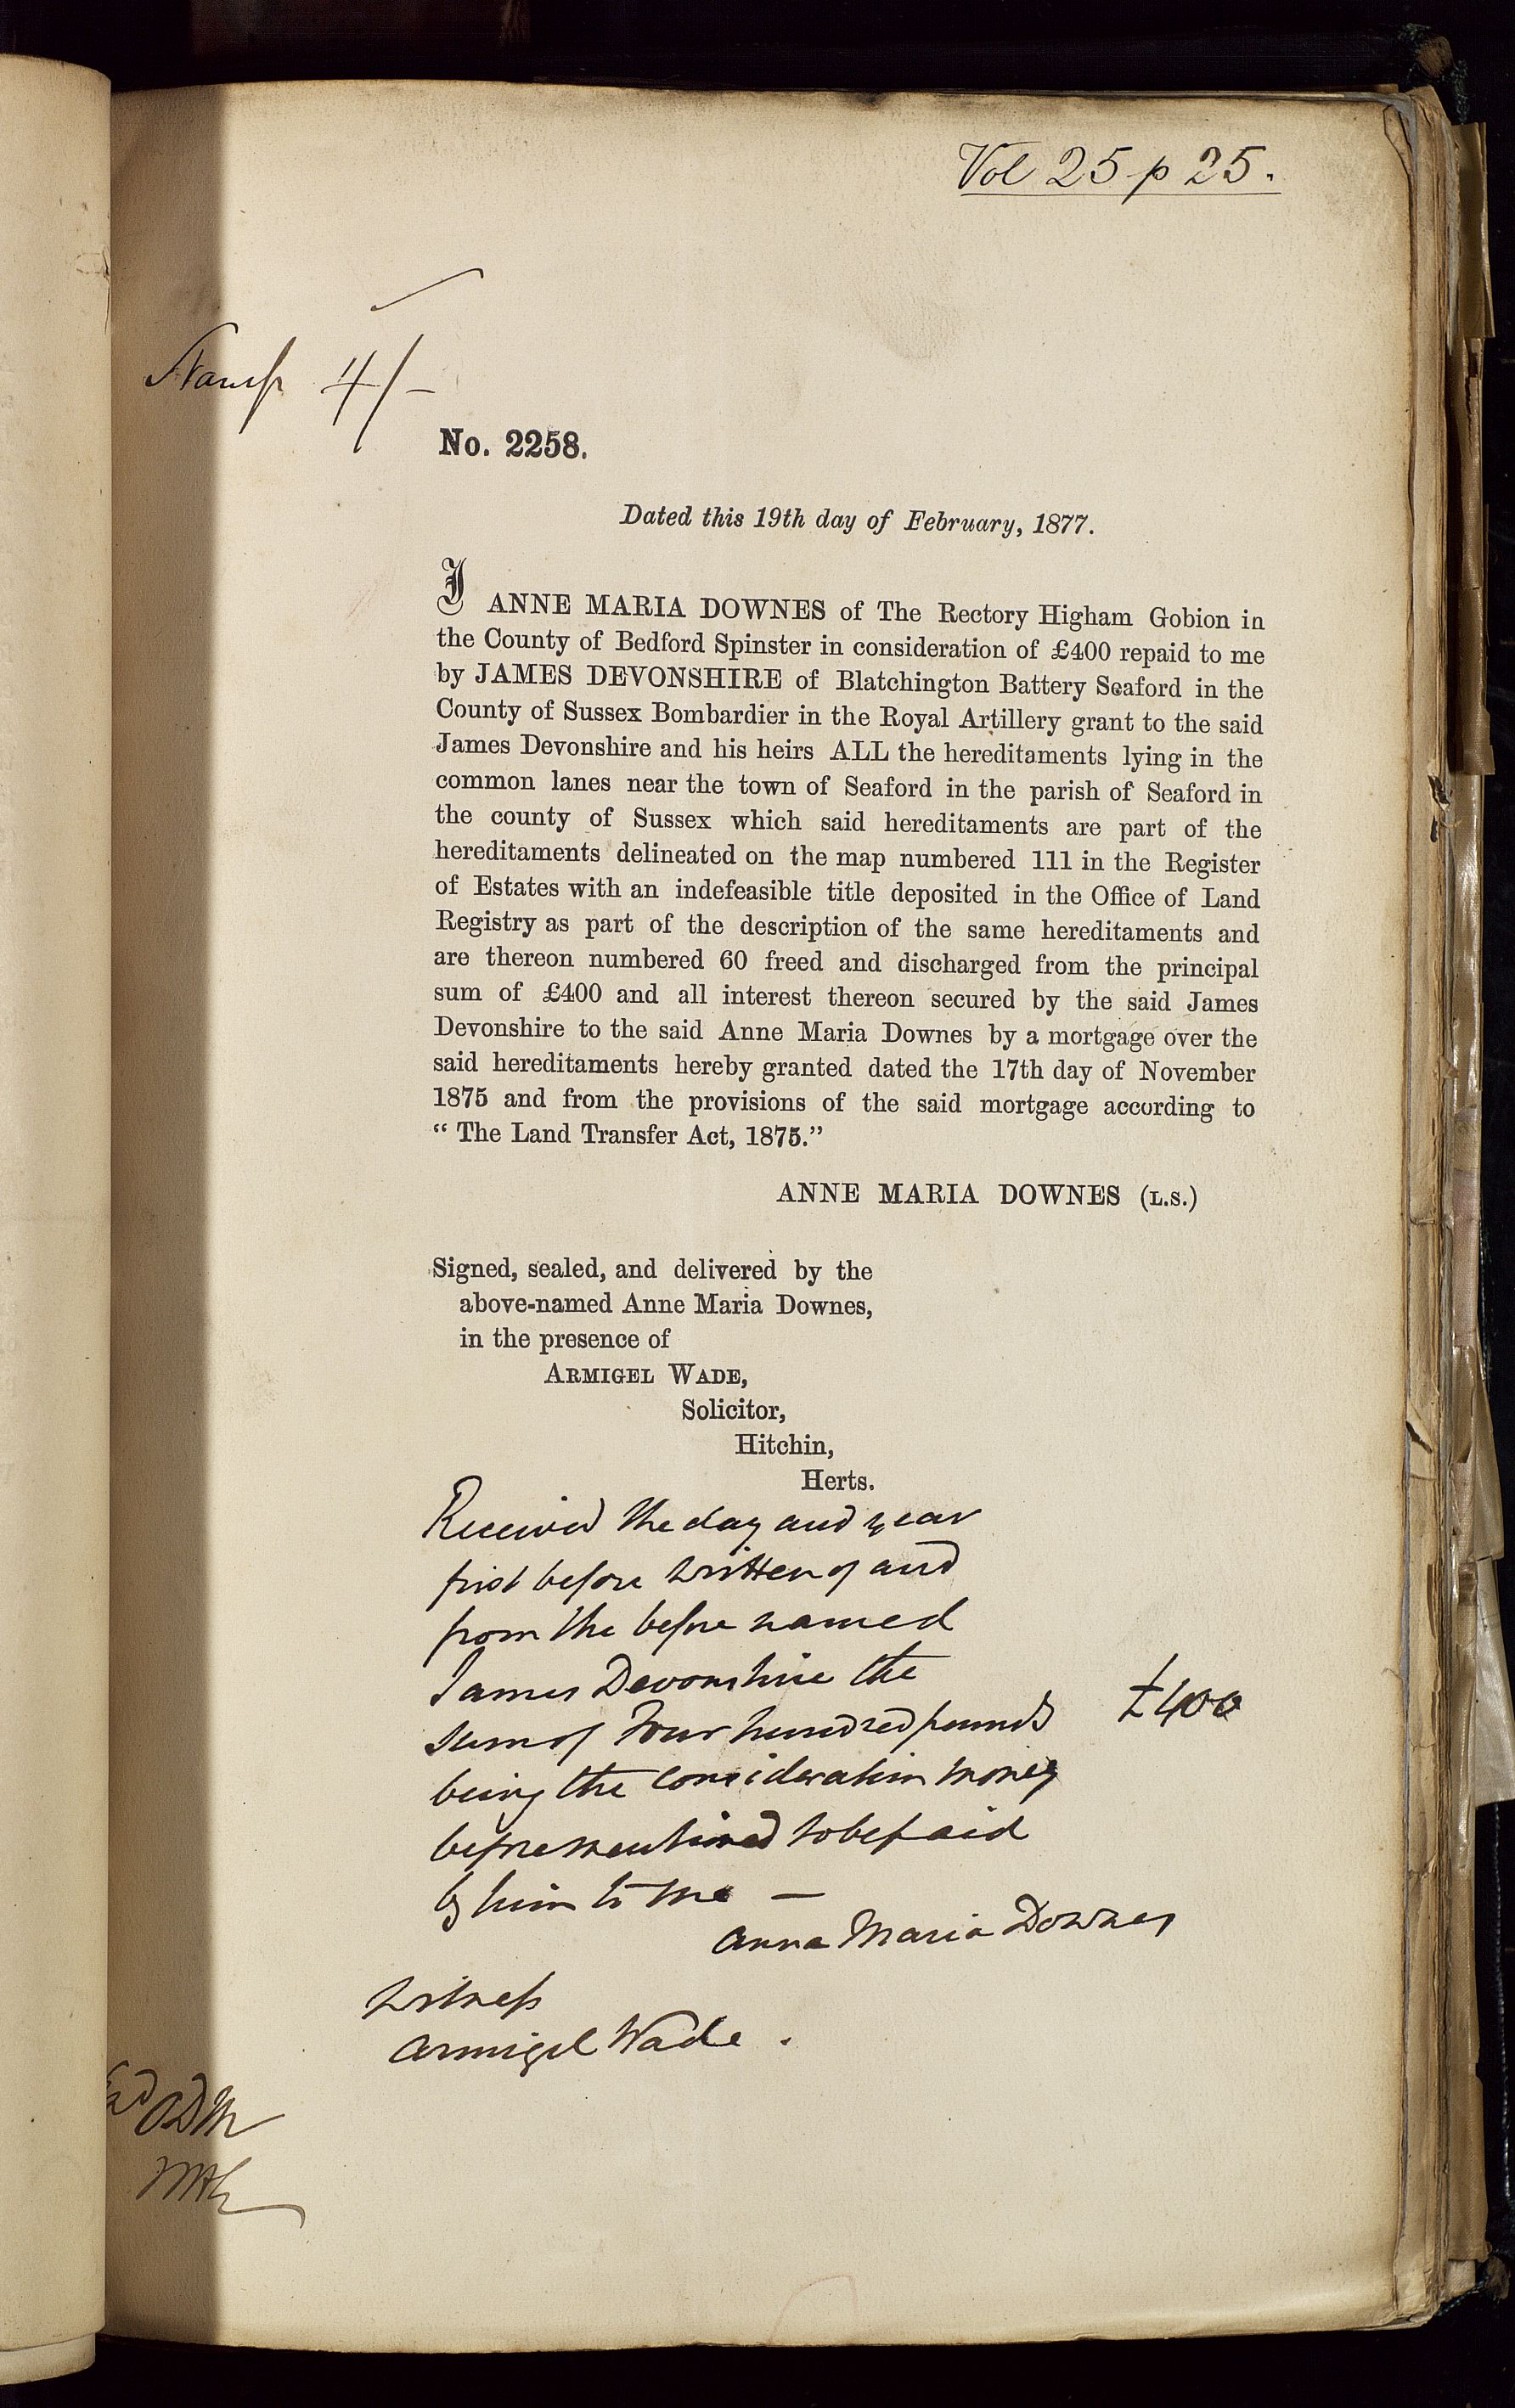 Vol 25 p 25.
Stamp 4/-
No. 2258.
Dated this 19th day of February, 1877.
I ANNE MARIA DOWNES of The Rectory Higham Gobion in
the County of Bedford Spinster in consideration of £400 repaid to me
by JAMES DEVONSHIRE of Blatchington Battery Seaford in the
County of Sussex Bombardier in the Royal Artillery grant to the said
James Devonshire and his heirs ALL the hereditaments lying in the
common lanes near the town of Seaford in the parish of Seaford in
the county of Sussex which said hereditaments are part of the
hereditaments delineated on the map numbered 111 in the Register
of Estates with an indefeasible title deposited in the Office of Land
Registry as part of the description of the same hereditaments and
are thereon numbered 60 freed and discharged from the principal
sum of £400 and all interest thereon secured by the said James
Devonshire to the said Anne Maria Downes by a mortgage over the
said hereditaments hereby granted dated the 17th day of November
1875 and from the provisions of the said mortgage according to
“ The Land Transfer Act, 1875.”
ANNE MARIA DOWNES (L.S.)
Signed, sealed, and delivered by the
above-named Anne Maria Downes,
in the presence of
ARMIGEL WADE,
Solicitor,
Hitchin,
Herts.
Received the day and year
first before written of and
from the before named
James Devonshire the
sum of Four hundred pounds £400
being the consideration money
beforementioned to be paid
by him to me —
Anna Maria Downes
Witness
Armigel Wade.